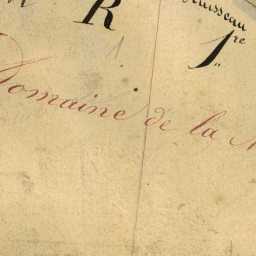 Ruisseau
R
1re
Domaine de la